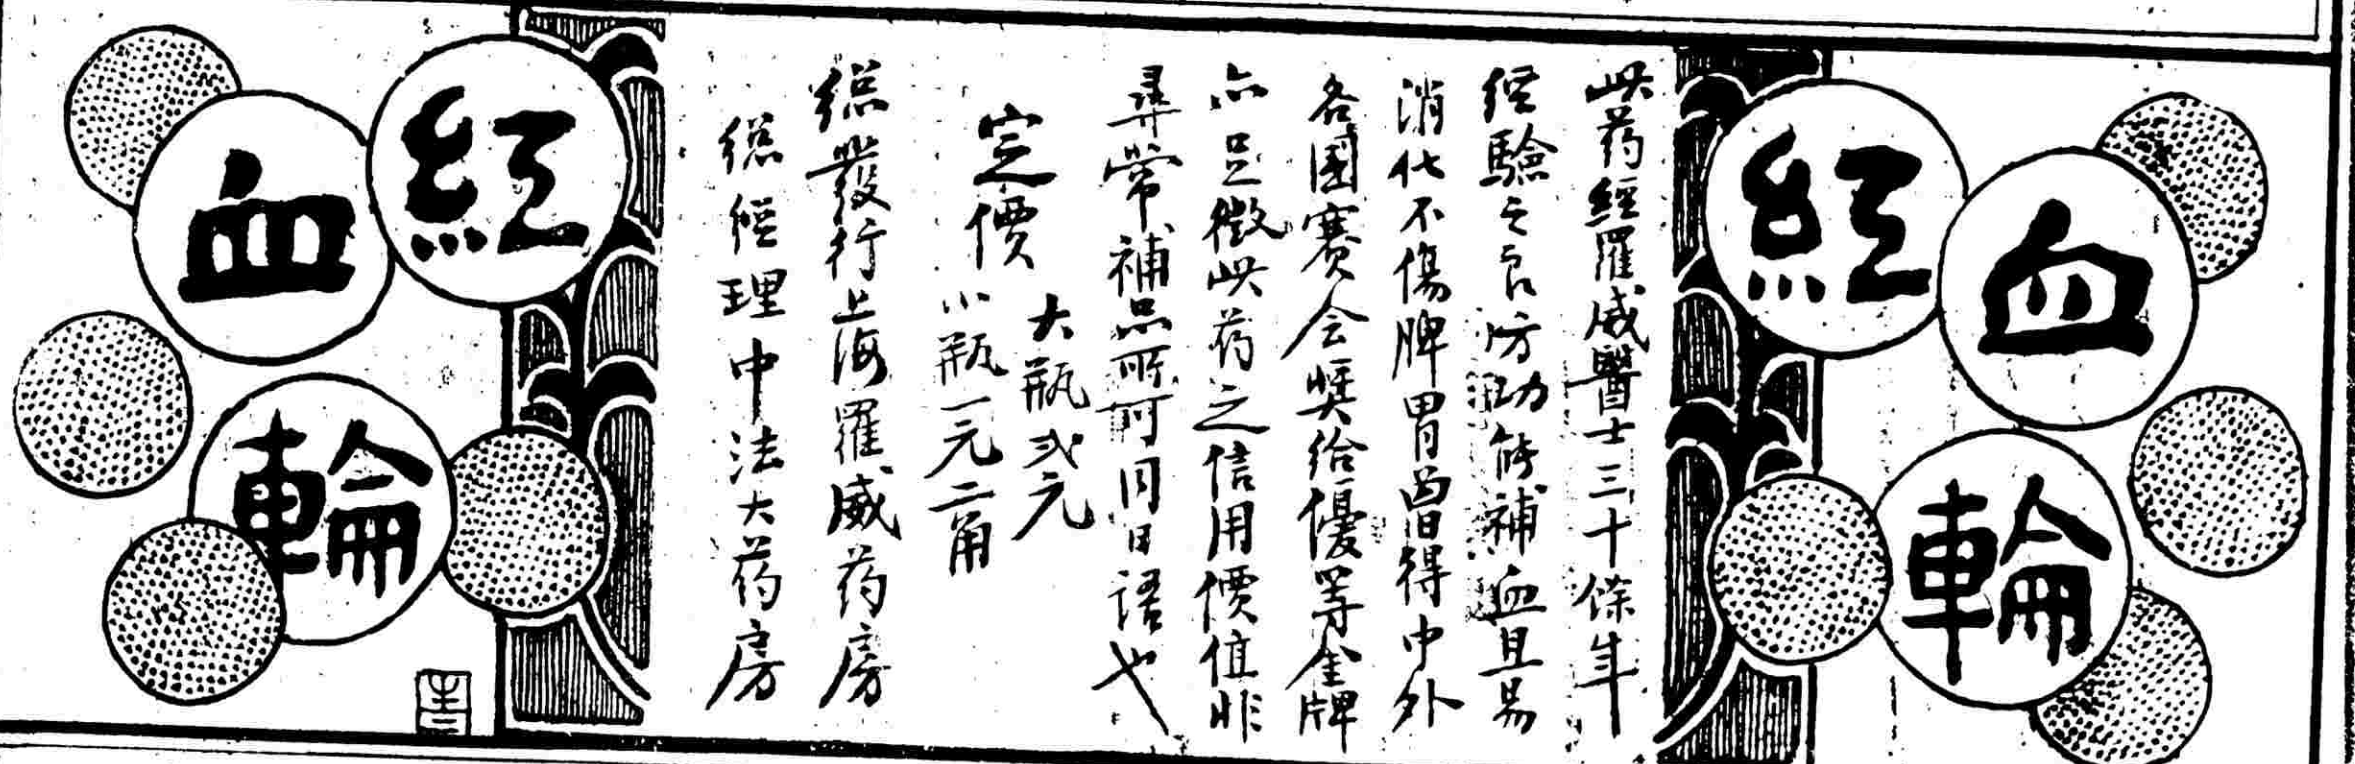 紅血輪
此药經羅威醫士三十餘年
经驗之良方功能補血且易
消化不傷脾胃曾得中外
各國賽会奬给優等金牌
亦足徵此药之信用價值非
尋常補品所可同日語也
定價
大瓶弍元
小瓶一元二角
總發行上海羅威药房
總經理中法大药房
紅血輪